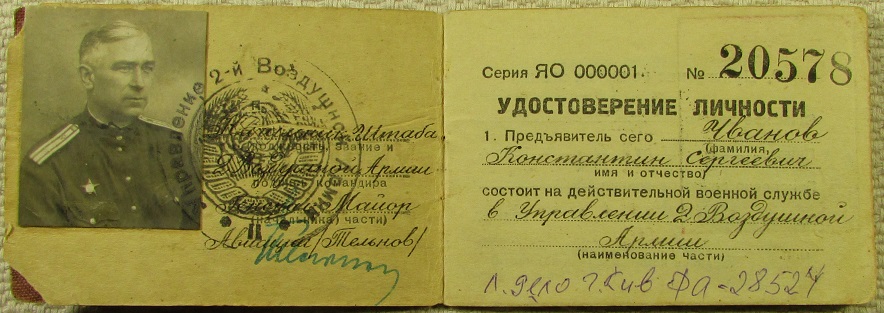 Управление 2-й Воздушной
Начальник Штаба
должность, звание и
2 Воздушной Армии
подпись командира
Майор
(начальника) части)
Авиации /Тельнов/
Серия ЯО 000001. № 20578
УДОСТОВЕРЕНИЕ ЛИЧНОСТИ
1. Предъявитель сего Иванов
(фамилия,
Константин Сергеевич
имя и отчество)
состоит на действительной военной службе
в Управлении 2 Воздушной
Армии
(наименование части)
л. дело г. Кив Фа-28524